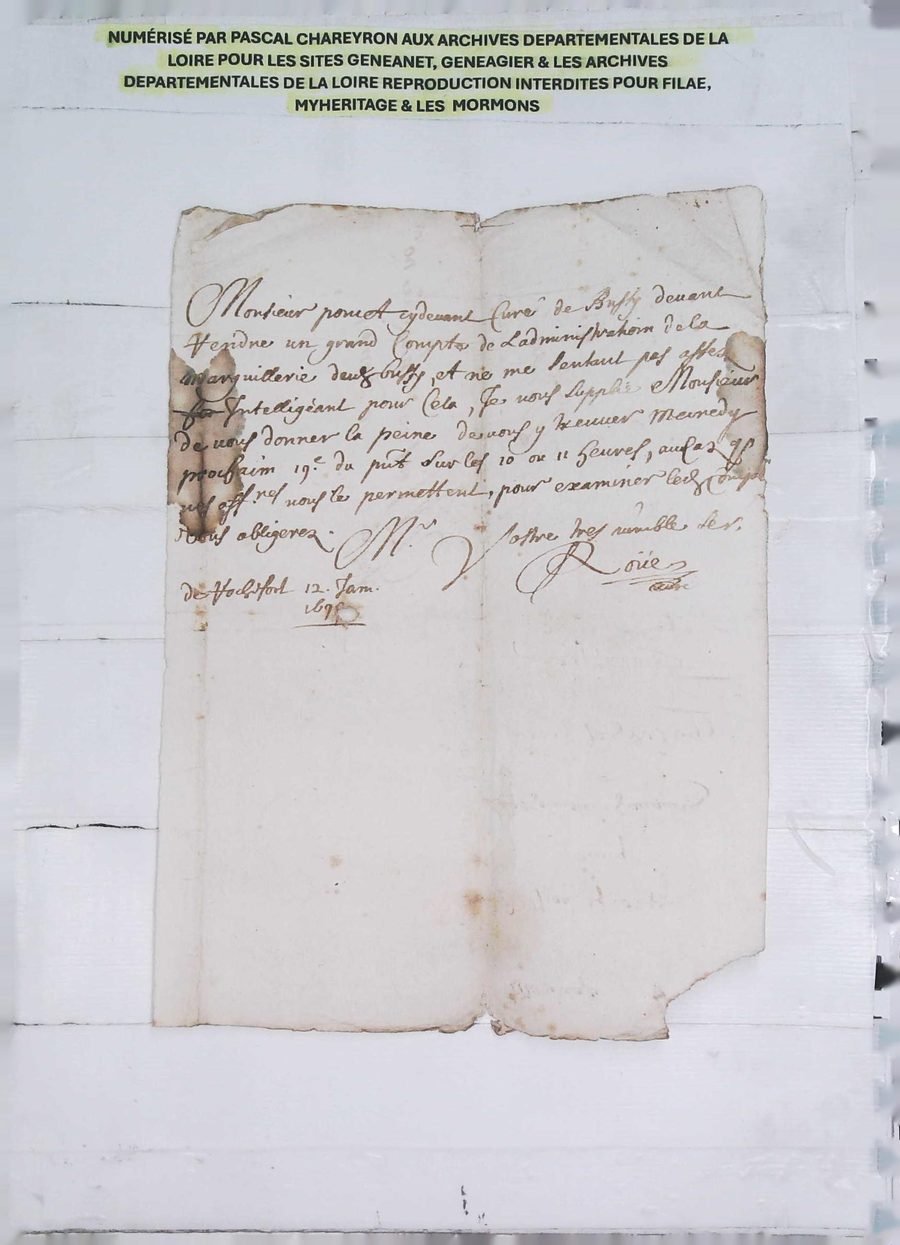 NUMÉRISÉ PAR PASCAL CHAREYRON AUX ARCHIVES DEPARTEMENTALES DE LA
LOIRE POUR LES SITES GENEANET, GENEAGIER & LES ARCHIVES
DEPARTEMENTALES DE LA LOIRE REPRODUCTION INTERDITES POUR FILAE,
MYHERITAGE & LES MORMONS
Monsieur poncet cydevant Curé de Bussy devant
Rendre un grand Compte de Ladministration de la
Marguillerie dud Bussy, et ne me sentant pas assez
Intelligéant pour Cela, Je vous supplie Monsieur
de vous donner la peine de vous y treuver mecredy
prochaim 19.e du pnt sur les 10 ou 11 heures, aucas q
vos aff.res vous le permettent, pour examiner led Compte
Vous obligerez. M.r Vostre tres humble ser.
Roüe
curé
de Rochefort 12. Jam.